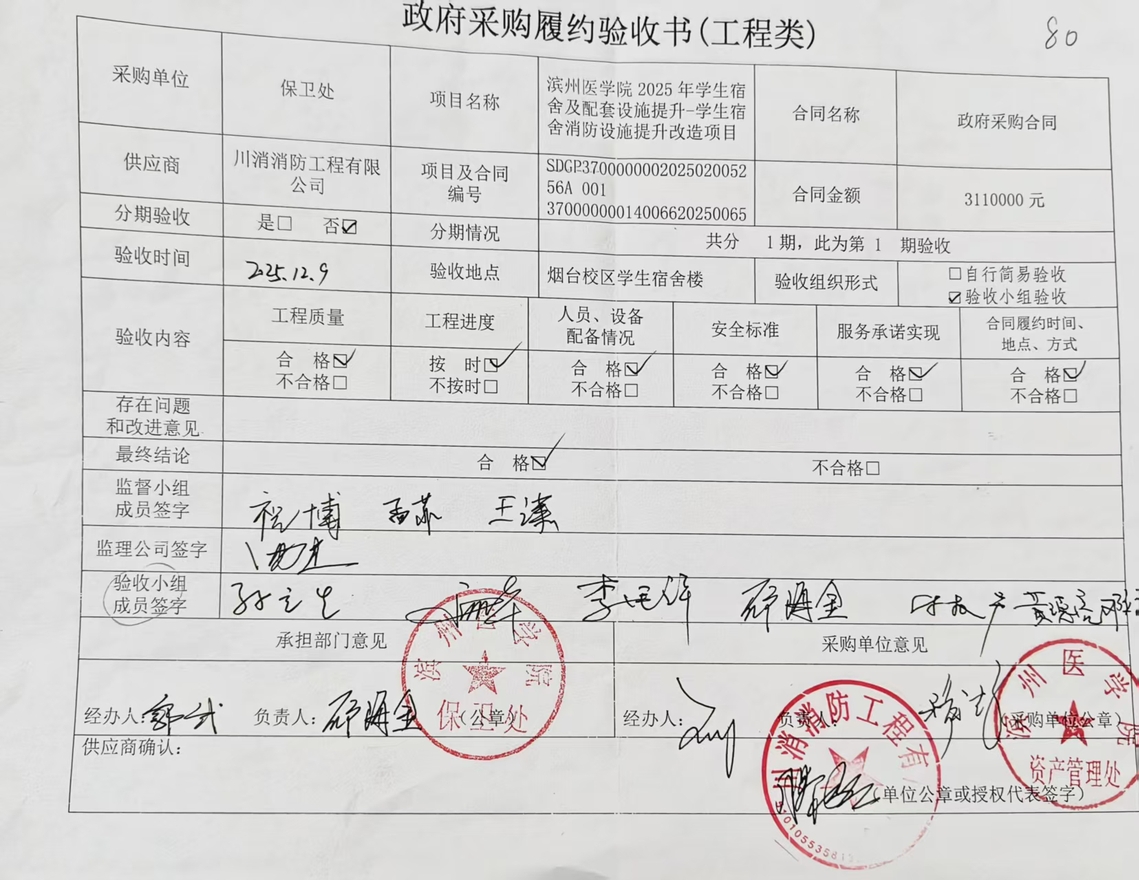 政府采购履约验收书(工程类)
80
采购单位 保卫处 项目名称 滨州医学院 2025 年学生宿舍及配套设施提升-学生宿舍消防设施提升改造项目 合同名称 政府采购合同
供应商 川消消防工程有限公司 项目及合同编号 SDGP370000000202502005256A 001 37000000014006620250065 合同金额 3110000 元
分期验收 是□ 否☑ 分期情况 共分 1期，此为第 1 期验收
验收时间 2025.12.9 验收地点 烟台校区学生宿舍楼 验收组织形式 □自行简易验收
☑验收小组验收
验收内容 工程质量 工程进度 人员、设备配备情况 安全标准 服务承诺实现 合同履约时间、地点、方式
合 格☑ 按 时☑ 合 格☑ 合 格☑ 合 格☑ 合 格☑
不合格□ 不按时□ 不合格□ 不合格□ 不合格□ 不合格□
存在问题和改进意见
最终结论 合 格☑ 不合格□
监督小组成员签字
监理公司签字
验收小组成员签字
承担部门意见 采购单位意见
经办人: 负责人: (公章) 经办人: 负责人: (采购单位公章)
滨州医学院
保卫处
滨州医学院
资产管理处
供应商确认:
川消消防工程有
单位公章或授权代表签字)